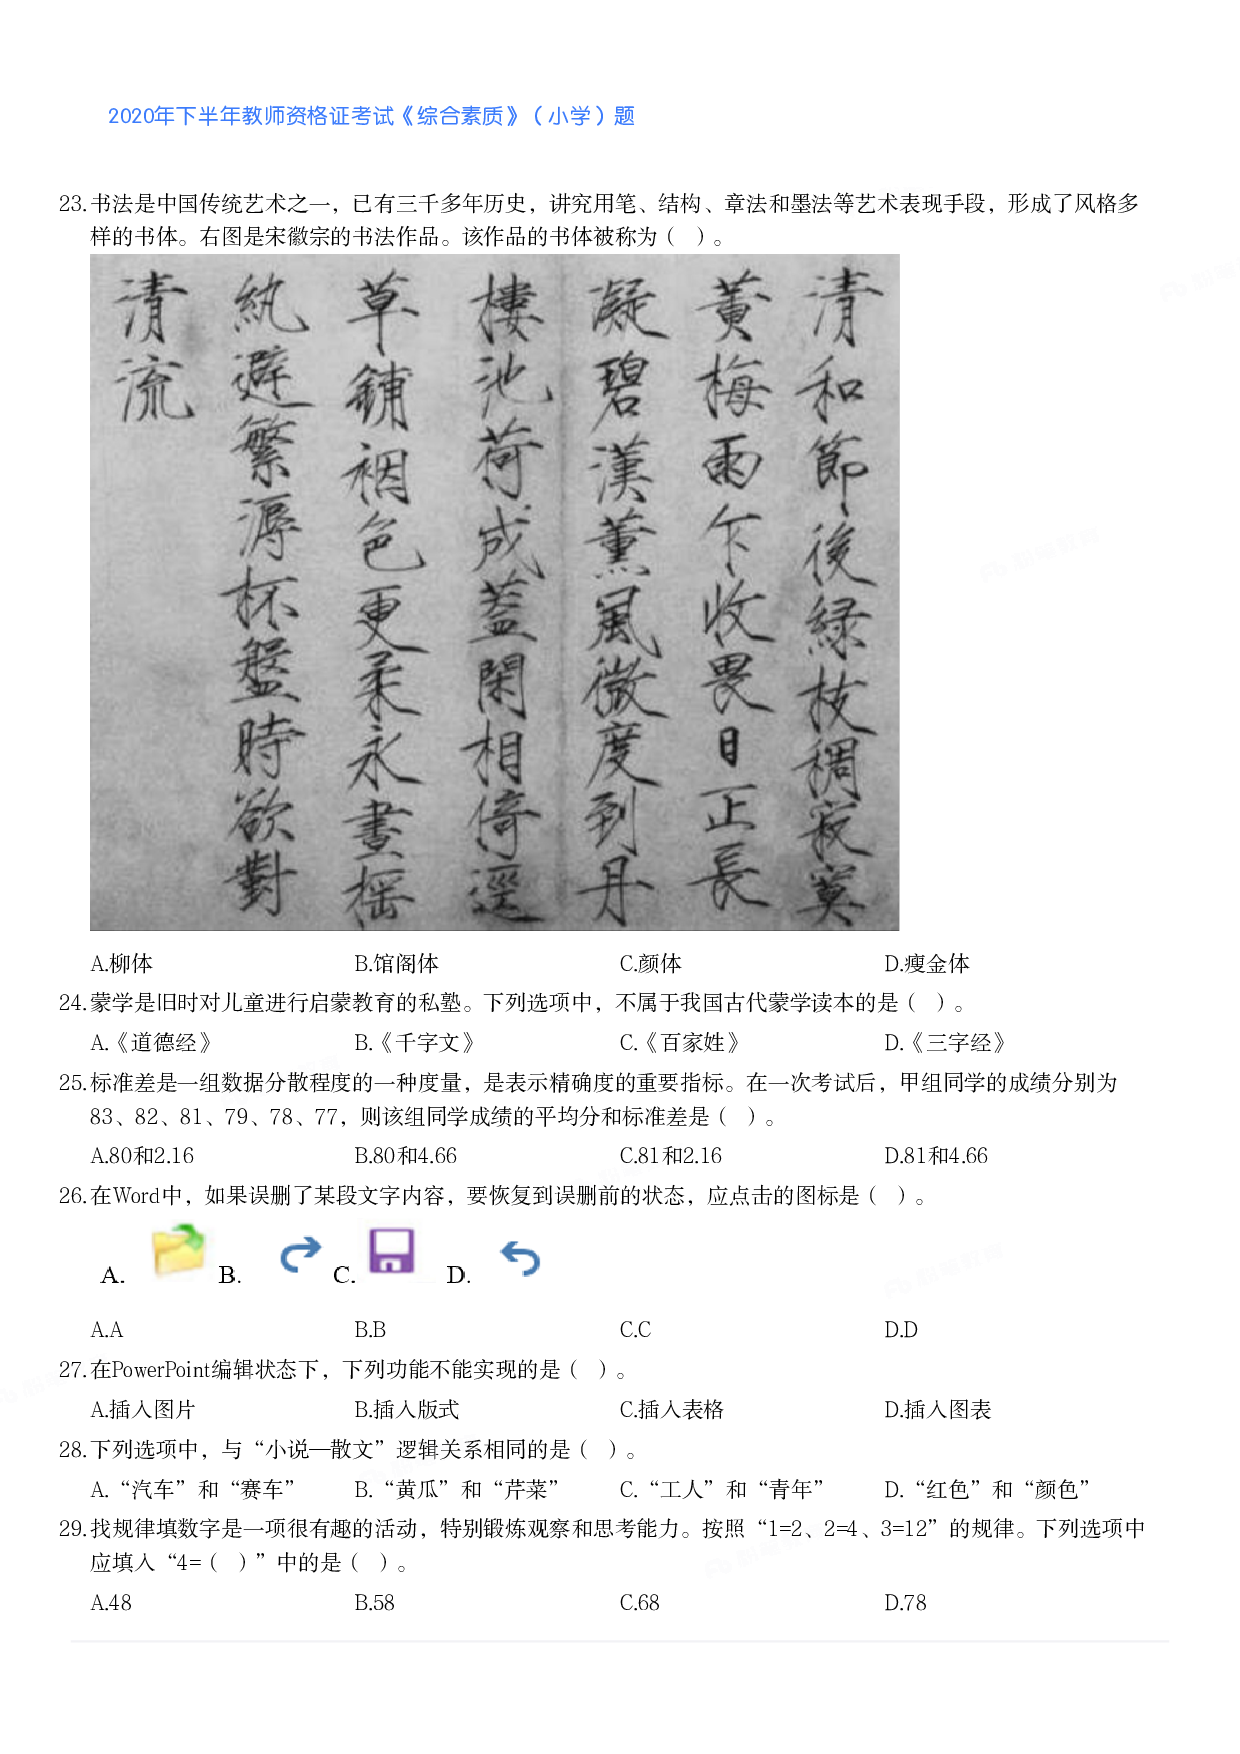 2020年下半年教师资格证考试《综合素质》（小学）题
23.书法是中国传统艺术之一，已有三千多年历史，讲究用笔、结构、章法和墨法等艺术表现手段，形成了风格多
样的书体。右图是宋徽宗的书法作品。该作品的书体被称为（ ）。
清和節後綠枝稠寂寞
黄梅雨乍收畏日正長
凝碧漢薰風微度到丹
樓池荷成蓋閑相倚逕
草鋪裀色更柔永晝摇
紈避繁溽杯盤時欲對
清流
A.柳体 B.馆阁体 C.颜体 D.瘦金体
24.蒙学是旧时对儿童进行启蒙教育的私塾。下列选项中，不属于我国古代蒙学读本的是（ ）。
A.《道德经》 B.《千字文》 C.《百家姓》 D.《三字经》
25.标准差是一组数据分散程度的一种度量，是表示精确度的重要指标。在一次考试后，甲组同学的成绩分别为
83、82、81、79、78、77，则该组同学成绩的平均分和标准差是（ ）。
A.80和2.16 B.80和4.66 C.81和2.16 D.81和4.66
26.在Word中，如果误删了某段文字内容，要恢复到误删前的状态，应点击的图标是（ ）。
A. B. C. D.
A.A B.B C.C D.D
27.在PowerPoint编辑状态下，下列功能不能实现的是（ ）。
A.插入图片 B.插入版式 C.插入表格 D.插入图表
28.下列选项中，与“小说—散文”逻辑关系相同的是（ ）。
A.“汽车”和“赛车” B.“黄瓜”和“芹菜” C.“工人”和“青年” D.“红色”和“颜色”
29.找规律填数字是一项很有趣的活动，特别锻炼观察和思考能力。按照“1=2、2=4、3=12”的规律。下列选项中
应填入“4=（ ）”中的是（ ）。
A.48 B.58 C.68 D.78